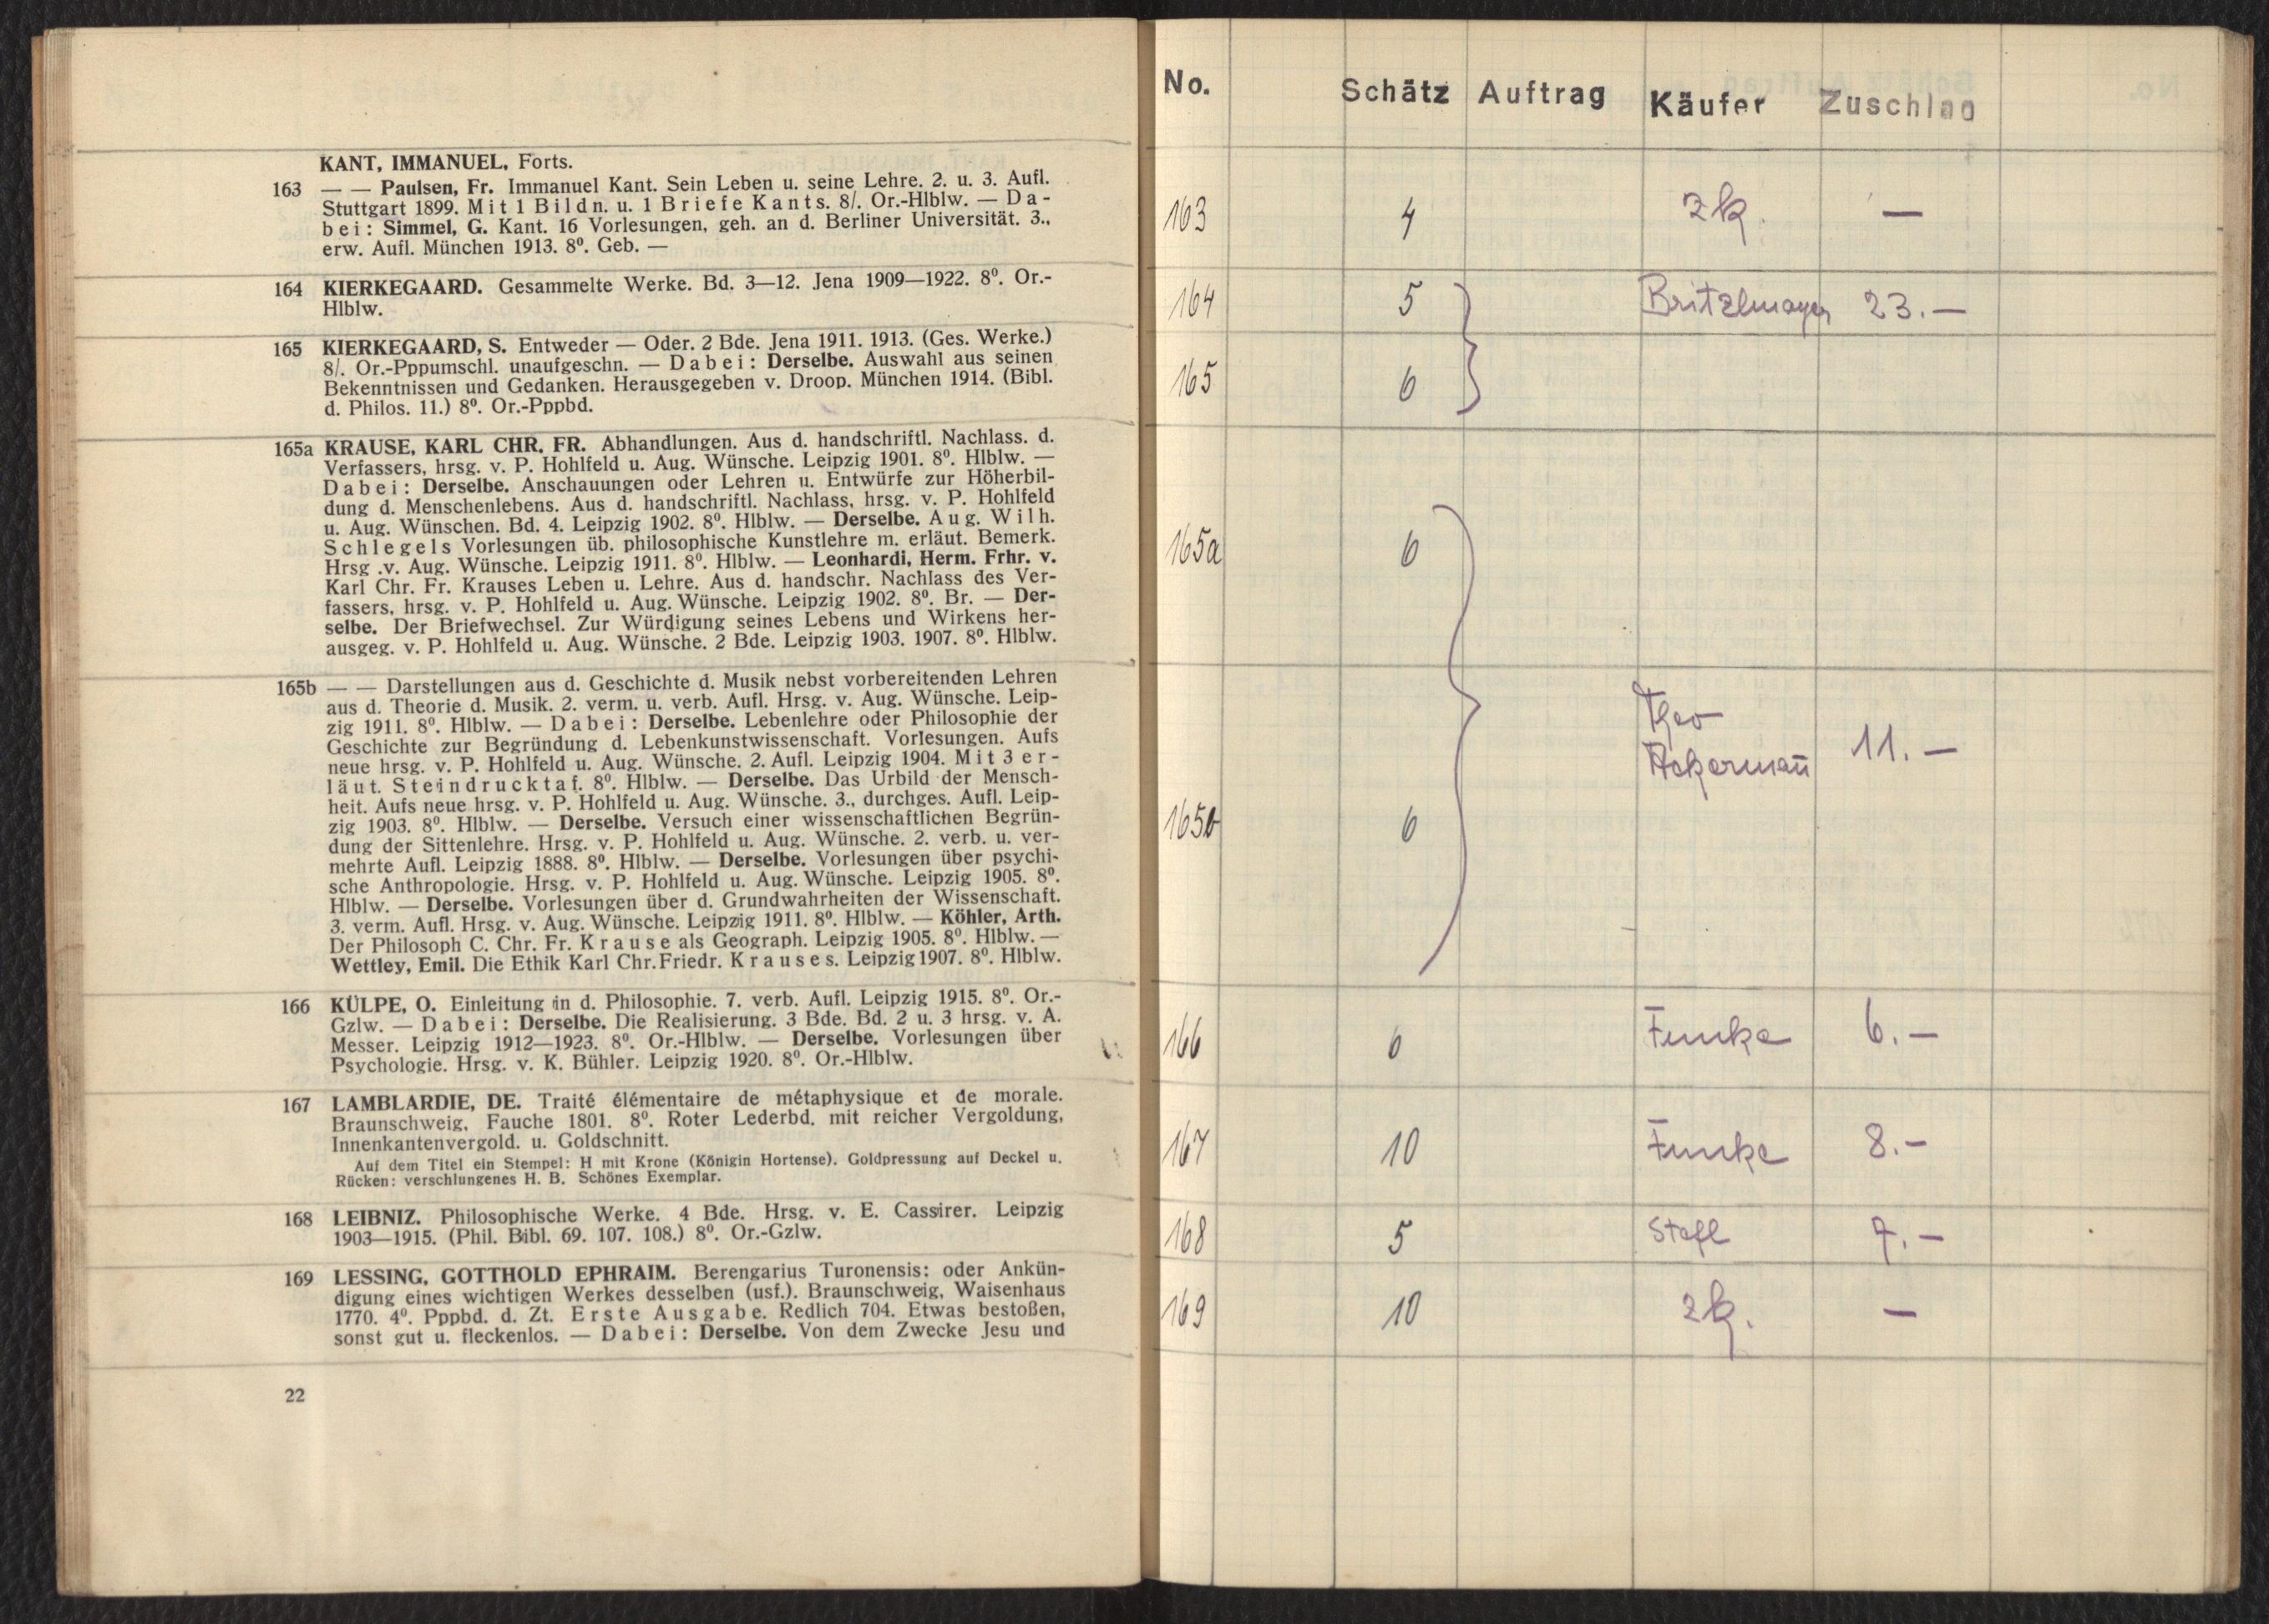 KANT, IMMANUEL, Forts.
163 — — Paulsen, Fr. Immanuel Kant. Sein Leben u. seine Lehre. 2. u. 3. Aufl.
Stuttgart 1899. Mit 1 Bildn. u. 1 Briefe Kants. 8/. Or.-Hlblw. — Da-
bei: Simmel, G. Kant. 16 Vorlesungen, geh. an d. Berliner Universität. 3.,
erw. Aufl. München 1913. 8⁰. Geb. —
164 KIERKEGAARD. Gesammelte Werke. Bd. 3—12. Jena 1909—1922. 8⁰. Or.-
Hlblw.
165 KIERKEGAARD, S. Entweder — Oder. 2 Bde. Jena 1911. 1913. (Ges. Werke.)
8/. Or.-Pppumschl. unaufgeschn. — Dabei: Derselbe. Auswahl aus seinen
Bekenntnissen und Gedanken. Herausgegeben v. Droop. München 1914. (Bibl.
d. Philos. 11.) 8⁰. Or.-Pppbd.
165a KRAUSE, KARL CHR. FR. Abhandlungen. Aus d. handschriftl. Nachlass. d.
Verfassers, hrsg. v. P. Hohlfeld u. Aug. Wünsche. Leipzig 1901. 8⁰. Hlblw. —
Dabei: Derselbe. Anschauungen oder Lehren u. Entwürfe zur Höherbil-
dung d. Menschenlebens. Aus d. handschriftl. Nachlass, hrsg. v. P. Hohlfeld
u. Aug. Wünschen. Bd. 4. Leipzig 1902. 8⁰. Hlblw. — Derselbe. Aug. Wilh.
Schlegels Vorlesungen üb. philosophische Kunstlehre m. erläut. Bemerk.
Hrsg .v. Aug. Wünsche. Leipzig 1911. 8⁰. Hlblw. — Leonhardi, Herm. Frhr. v.
Karl Chr. Fr. Krauses Leben u. Lehre. Aus d. handschr. Nachlass des Ver-
fassers, hrsg. v. P. Hohlfeld u. Aug. Wünsche. Leipzig 1902. 8⁰. Br. — Der-
selbe. Der Briefwechsel. Zur Würdigung seines Lebens und Wirkens her-
ausgeg. v. P. Hohlfeld u. Aug. Wünsche. 2 Bde. Leipzig 1903. 1907. 8⁰. Hlblw.
165b — — Darstellungen aus d. Geschichte d. Musik nebst vorbereitenden Lehren
aus d. Theorie d. Musik. 2. verm. u. verb. Aufl. Hrsg. v. Aug. Wünsche. Leip-
zig 1911. 8⁰. Hlblw. — Dabei: Derselbe. Lebenlehre oder Philosophie der
Geschichte zur Begründung d. Lebenkunstwissenschaft. Vorlesungen. Aufs
neue hrsg. v. P. Hohlfeld u. Aug. Wünsche. 2. Aufl. Leipzig 1904. Mit 3 er-
läut. Steindrucktaf. 8⁰. Hlblw. — Derselbe. Das Urbild der Mensch-
heit. Aufs neue hrsg. v. P. Hohlfeld u. Aug. Wünsche. 3., durchges. Aufl. Leip-
zig 1903. 8⁰. Hlblw. — Derselbe. Versuch einer wissenschaftlichen Begrün-
dung der Sittenlehre. Hrsg. v. P. Hohlfeld u. Aug. Wünsche. 2. verb. u. ver-
mehrte Aufl. Leipzig 1888. 8⁰. Hlblw. — Derselbe. Vorlesungen über psychi-
sche Anthropologie. Hrsg. v. P. Hohlfeld u. Aug. Wünsche. Leipzig 1905. 8⁰.
Hlblw. — Derselbe. Vorlesungen über d. Grundwahrheiten der Wissenschaft.
3. verm. Aufl. Hrsg. v. Aug. Wünsche. Leipzig 1911. 8⁰. Hlblw. — Köhler, Arth.
Der Philosoph C. Chr. Fr. Krause als Geograph. Leipzig 1905. 8⁰. Hlblw. —
Wettley, Emil. Die Ethik Karl Chr. Friedr. Krauses. Leipzig 1907. 8⁰. Hlblw.
166 KÜLPE, O. Einleitung in d. Philosophie. 7. verb. Aufl. Leipzig 1915. 8⁰. Or.-
Gzlw. — Dabei: Derselbe. Die Realisierung. 3 Bde. Bd. 2 u. 3 hrsg. v. A.
Messer. Leipzig 1912—1923. 8⁰. Or.-Hlblw. — Derselbe. Vorlesungen über
Psychologie. Hrsg. v. K. Bühler. Leipzig 1920. 8⁰. Or.-Hlblw.
167 LAMBLARDIE, DE. Traité élémentaire de métaphysique et de morale.
Braunschweig, Fauche 1801. 8⁰. Roter Lederbd. mit reicher Vergoldung,
Innenkantenvergold. u. Goldschnitt.
Auf dem Titel ein Stempel: H mit Krone (Königin Hortense). Goldpressung auf Deckel u.
Rücken: verschlungenes H. B. Schönes Exemplar.
168 LEIBNIZ. Philosophische Werke. 4 Bde. Hrsg. v. E. Cassirer. Leipzig
1903—1915. (Phil. Bibl. 69. 107. 108.) 8⁰. Or.-Gzlw.
169 LESSING, GOTTHOLD EPHRAIM. Berengarius Turonensis: oder Ankün-
digung eines wichtigen Werkes desselben (usf.). Braunschweig, Waisenhaus
1770. 4⁰. Pppbd. d. Zt. Erste Ausgabe. Redlich 704. Etwas bestoßen,
sonst gut u. fleckenlos. — Dabei: Derselbe. Von dem Zwecke Jesu und
22
No. Schätz Auftrag Käufer Zuschlag
163 4 zk. —
164 5 Britzlmayer 23.—
165 6
165a 6
Theo
Ackermañ 11.—
165b 6
166 6 Funke 6.—
167 10 Funke 8.—
168 5 Stefl 7.—
169 10 zk. —